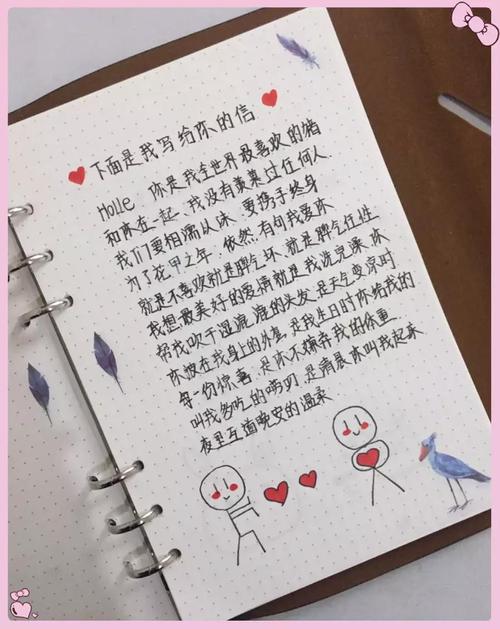 下面是我写给你的信
Holle 你是我全世界最喜欢的猪
和你在一起、我没有羡慕过任何人
我们要相濡以沫 要携手终身
为了花甲之年 依然有句我爱你
就是不喜欢就是脾气坏、就是脾气任性
我想最美好的爱情就是我洗完澡你
帮我吹干湿漉漉的头发、是天气变凉时
你披在我身上的外套、是我生日时你给我的
每一份惊喜、是你不嫌弃我的体重
叫我多吃的唠叨、是清晨你叫我起床
夜里互道晚安的温柔